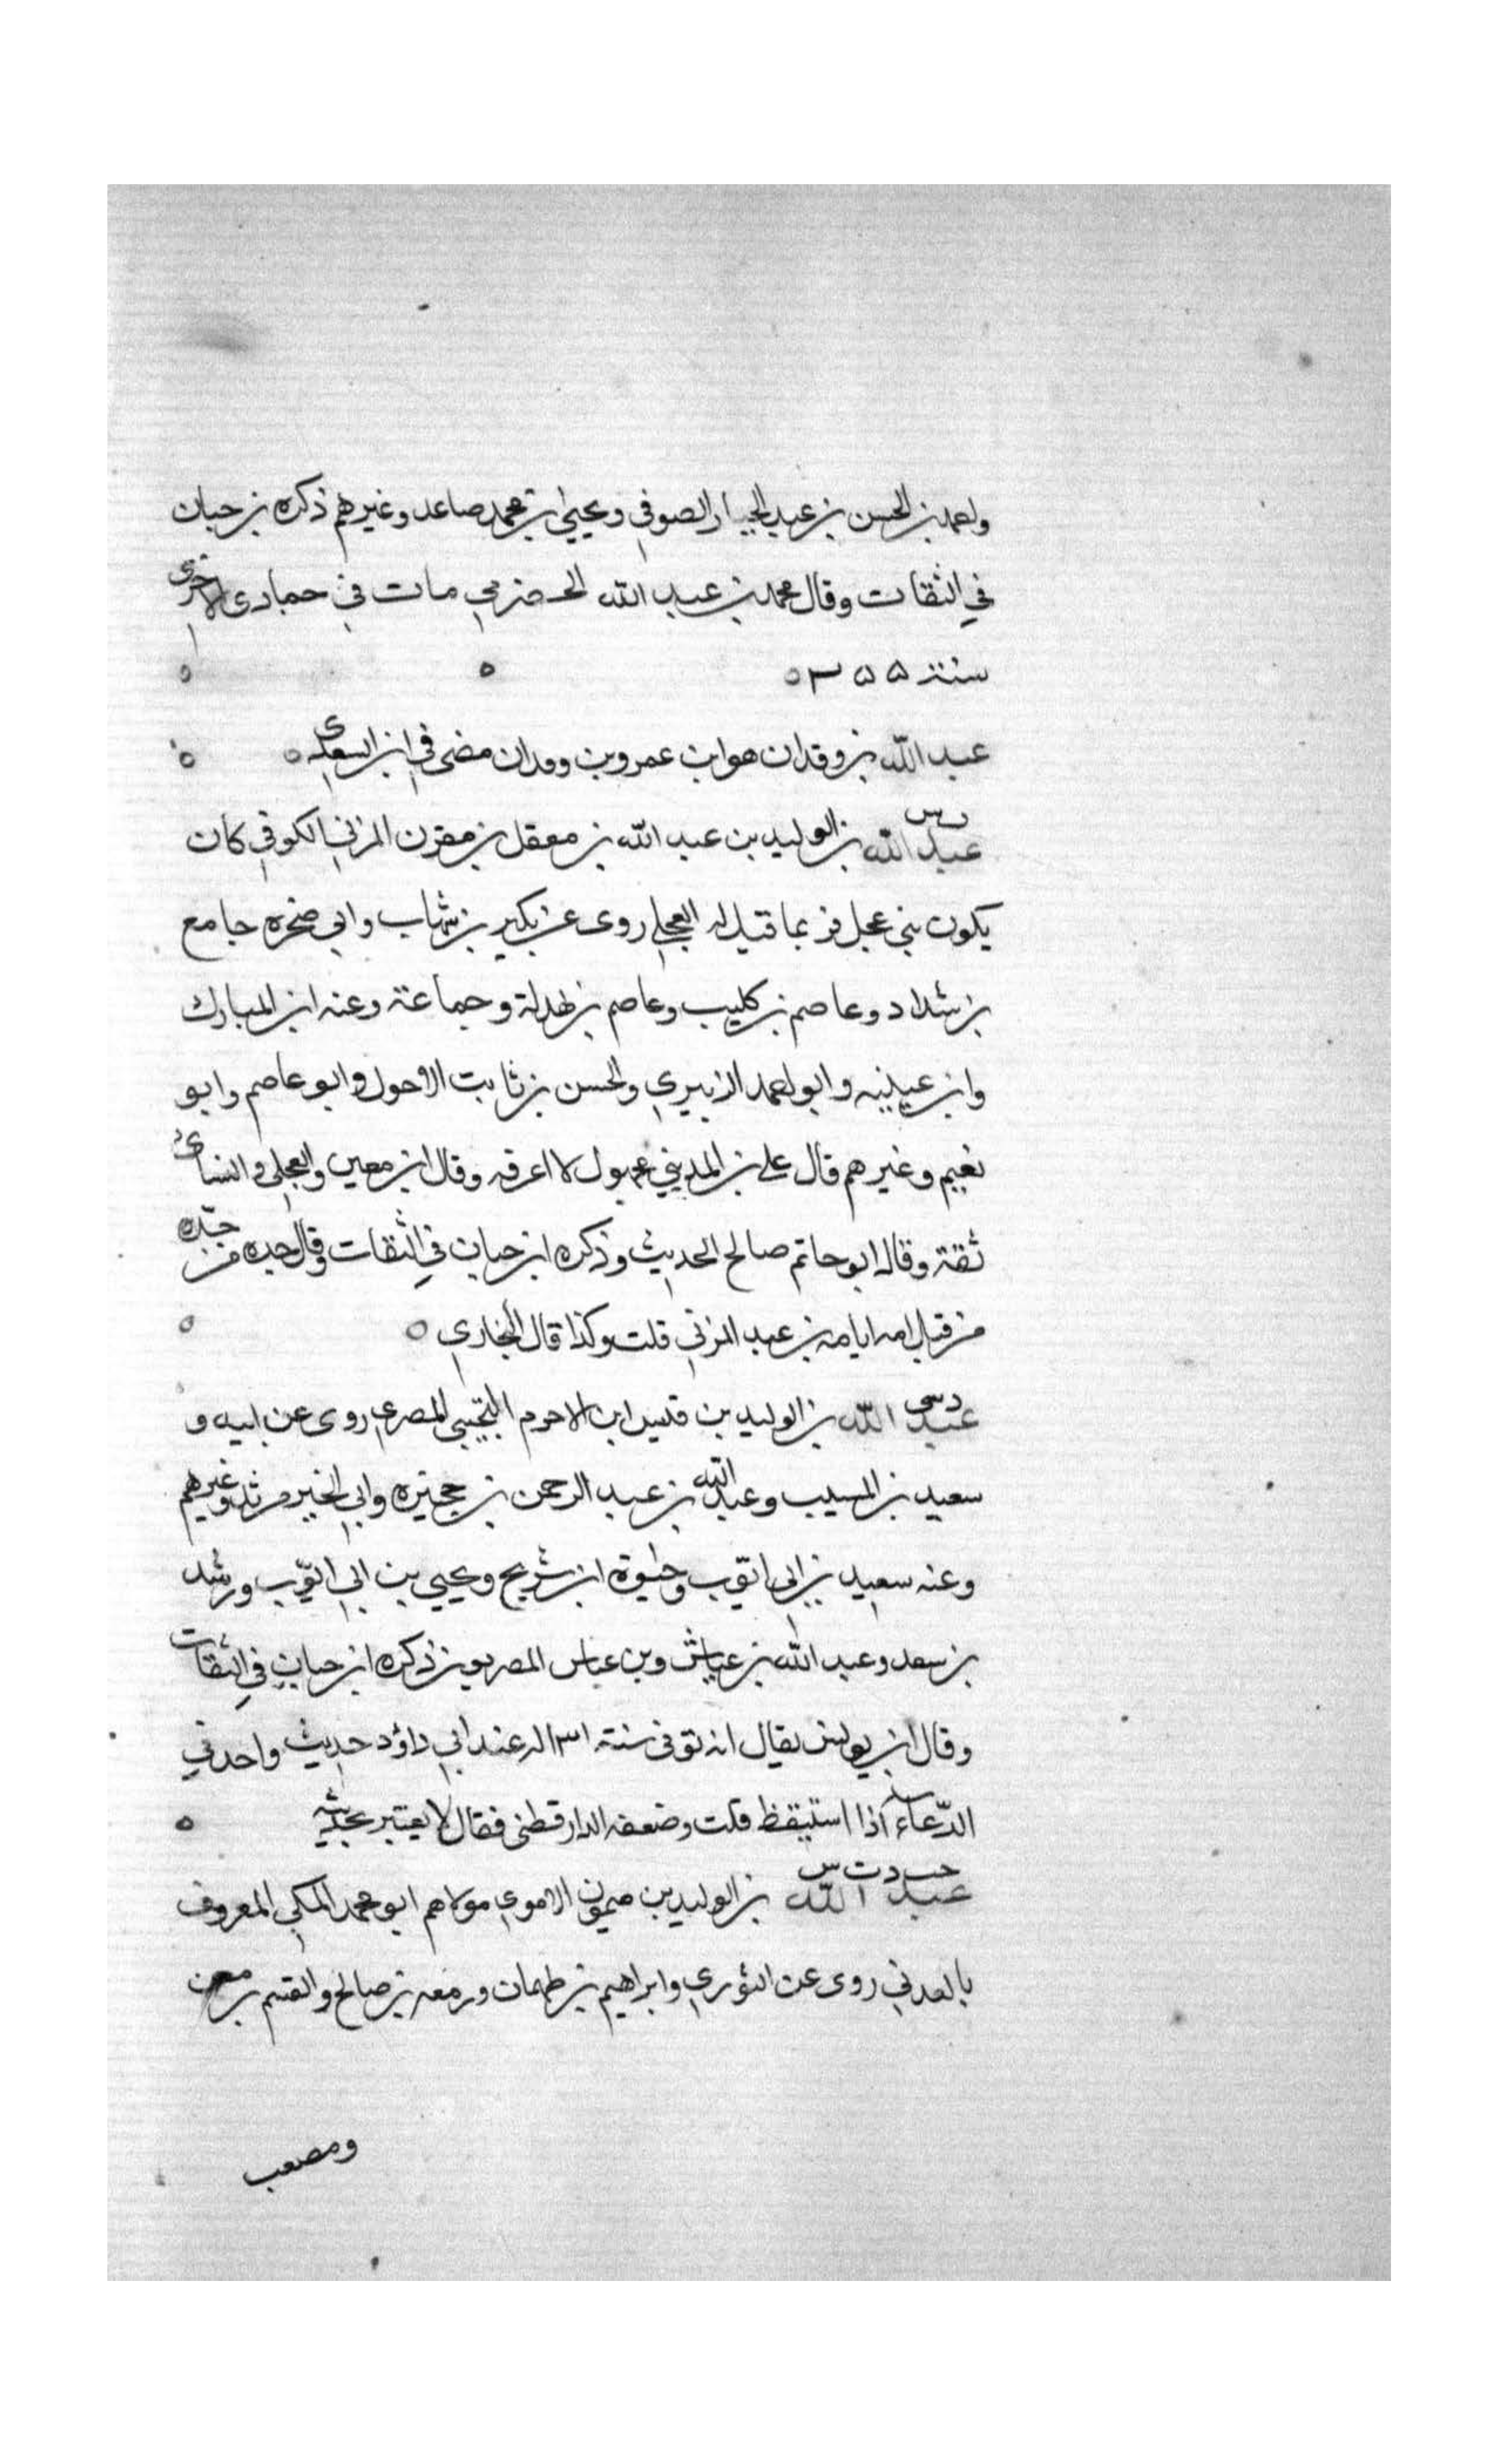 واحمد بن الحسن بن عبد الجبار الصوفي ويحيى بن محمد صاعد وغيرهم ذكره بن حبان
في الثقات وقال محمد بن عبد الله الحضرمي مات في جمادى الاخرى
سنة ۲۵۵ ه ه ه
عبد الله بن وقدان هو ابن عمرو بن وقدان مضى في ابن السعدي ه ه
س
عبد الله بن الوليد بن عبد الله بن معقل بن مقرن المزني الكوفي كان
يكون بني عجل فربما قيل له العجلي روى عن بكير بن شهاب وابي صخرة جامع
بن شداد وعاصم بن كليب وعاصم بن بهدلة وجماعة وعنه ابن المبارك
وابن عيينيه وابو احمد الزبيري والحسن بن ثابت الاحول وابو عاصم وابو
نعيم وغيرهم قال علي بن المديني مجهول لا اعرفه وقال ابن معين والعجلي والنسائي
ثقة وقال ابو حاتم صالح الحديث وذكره ابن حبان في الثقات وقال جده من جده
من قبل امه ايامه بن عبد المزني قلت وكذا قال البخاري ه ه
دسي
عبد الله بن الوليد بن قيس ابن الاحرم التجيبي المصري روى عن ابيه و
سعيد بن المسيب وعبد الله بن عبد الرحمن بن حجيرة وابي الخير مرثد وغيرهم
وعنه سعيد بن ابي ايوب وحيوة ابن شريح ويحيى بن ابي ايوب ورشد
بن سعد وعبد الله بن عياش وبن عباس المصريون ذكره ابن حبان في الثقات
وقال ابن يونس يقال انه توفى سنة ۱۳۱ له عند ابي داؤد حديث واحد في
الدعاء اذا استيقظ قلت وضعفه الدارقطني فقال لا يعتبر بحديثه ه
خت د ت س
عبد الله بن الوليد بن ميمون الاموي مولاهم ابو محمد المكي المعروف
بالعدني روى عن الثوري وابراهيم بن طهمان وزمعه بن صالح والقسم بن معن
ومصعب